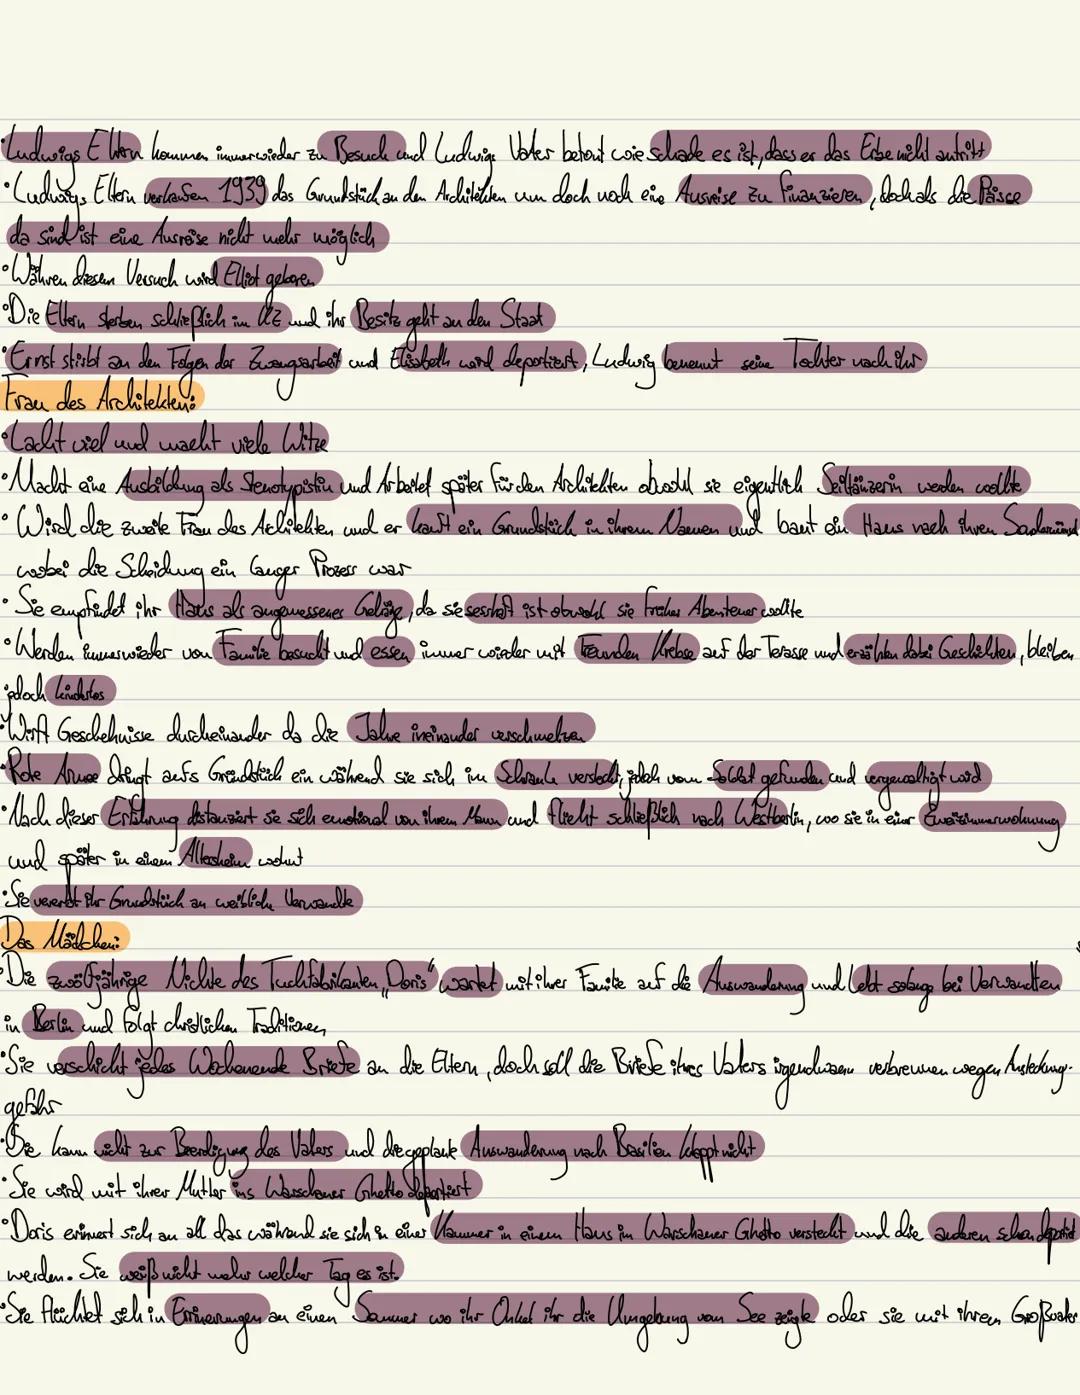 •Ludwigs Eltern kommen immer wieder zu Besuch und Ludwigs Vater betont wie schade es ist, dass er das Erbe nicht antritt
•Ludwigs Eltern verkaufen 1939 das Grundstück an den Architekten um doch noch eine Ausreise zu finanzieren, doch als die Pässe
da sind ist eine Ausreise nicht mehr möglich
•Währen diesem Versuch wird Elliot geboren
•Die Eltern sterben schließlich im KZ und ihr Besitz geht an den Staat
•Ernst stirbt an den Folgen der Zwangsarbeit und Elisabeth wird deportiert, Ludwig benennt seine Tochter nach ihr
Frau des Architekten:
•Lacht viel und macht viele Witze
•Macht eine Ausbildung als Stenotypistin und Arbeitet später für den Architekten obwohl sie eigentlich Seiltänzerin werden wollte
•Wird die zweite Frau des Achitekten und er kauft ein Grundstück in ihrem Namen und baut ein Haus nach ihren
wobei die Scheidung ein langer Prozess war
•Sie empfindet ihr Haus als angemessenes Gelöge, da sie sesshaft ist obwohl sie früher Abenteuer wollte
•Werden immer wieder von Familie besucht und essen immer wieder mit Freunden Krebse auf der Terasse und erzählen dabei Geschichten, bleiben
jedoch kinderlos
•Wirft Geschehnisse durcheinander da die Jahre ineinander verschmelzen
•Rote Armee dringt aufs Grundstück ein während sie sich im Schrank versteckt, jedoch vom Soldat gefunden und vergewaltigt wird
•Nach dieser Erfahrung distanziert sie sich emotional von ihrem Mann und flieht schließlich nach Westberlin, wo sie in einer Zweizimmerwohnung
und später in einem Altersheim wohnt
•Sie vererbt ihr Grundstück an weibliche Verwandte
Das Mädchen:
•Die zwölfjährige Nichte des Tuchfabrikanten „Doris" wartet mit ihrer Familie auf die Auswanderung und lebt solange bei Verwandten
in Berlin und folgt christlichen Traditionen
•Sie verschickt jedes Wochenende Briefe an die Eltern, doch soll die Briefe ihres Vaters irgendwann verbrennen wegen Ansteckungs-
gefahr
•Sie kann nicht zur Beerdigung des Vaters und die geplante Auswanderung nach Brasilien klappt nicht
•Sie wird mit ihrer Mutter ins Warschauer Ghetto deportiert
•Doris erinnert sich an all das während sie sich in einer Kammer in einem Haus im Warschauer Ghetto versteckt und die anderen schon deportiert
werden. Sie weiß nicht mehr welcher Tag es ist.
•Sie flüchtet sich in Erinnerungen an einen Sommer wo ihr Onkel ihr die Umgebung vom See zeigte oder sie mit ihrem Großvater